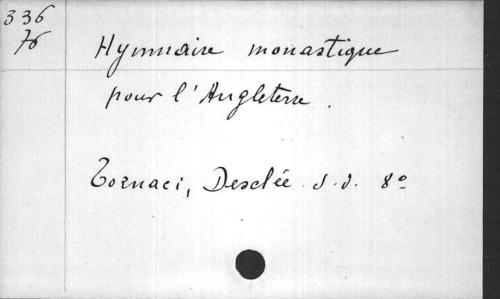 336
76
Hymnaire monastique
pour l'Angleterre.
Tornaci, Desclée s.d. 8º